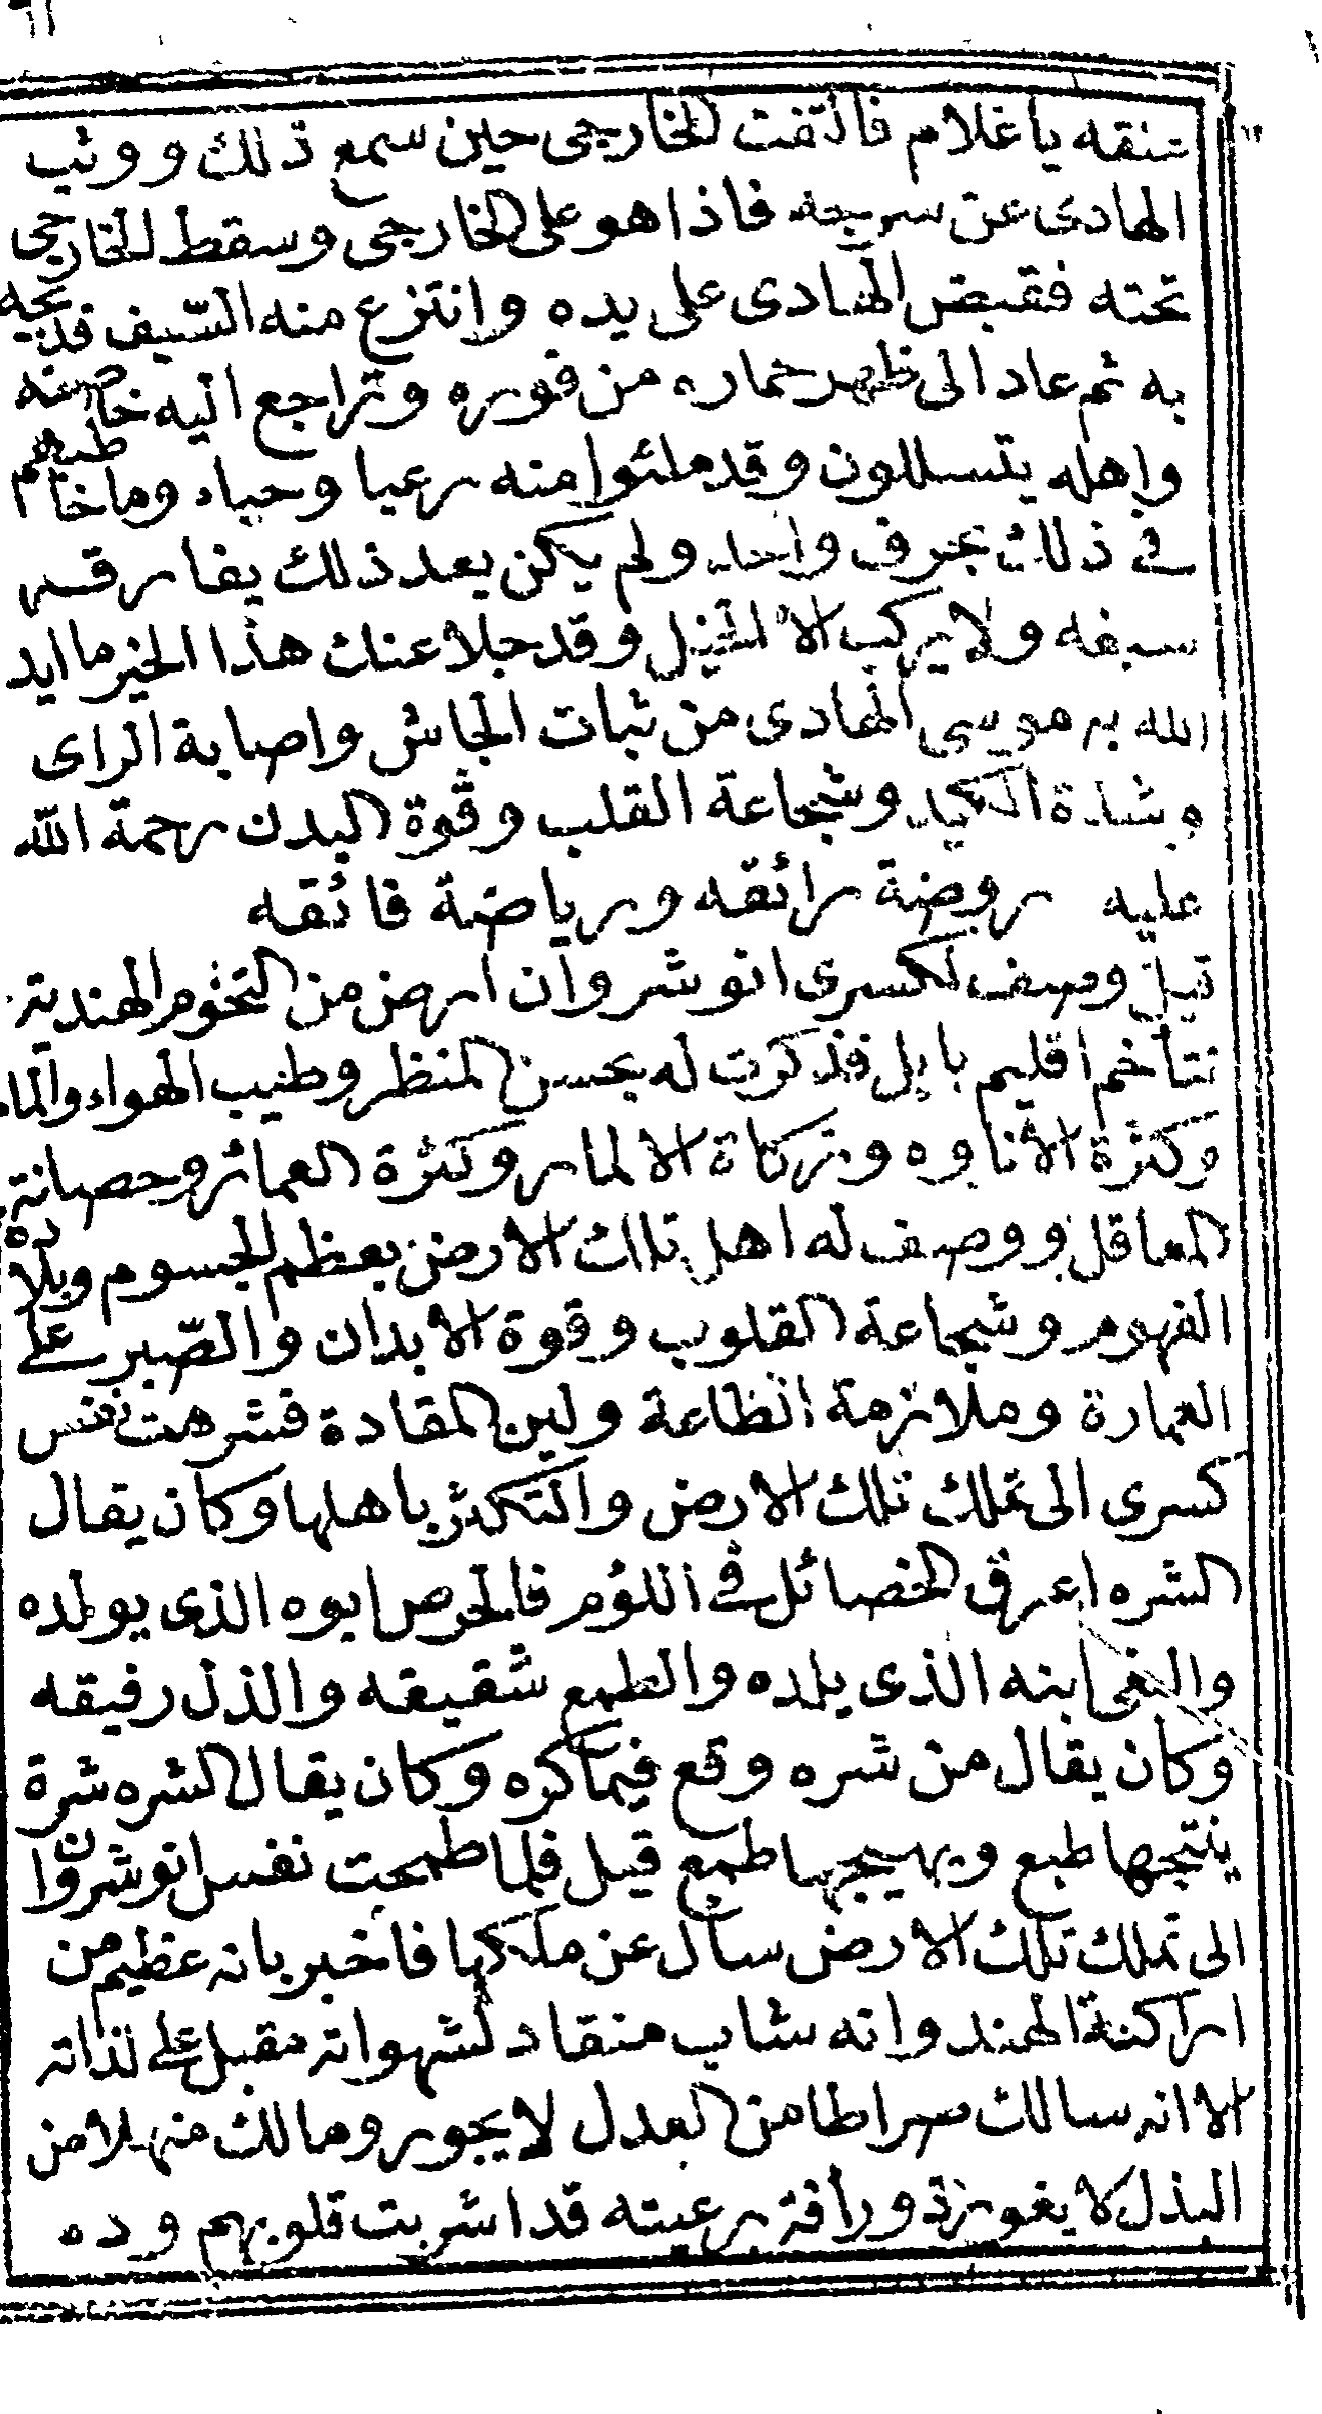 عنقه يا غلام فالتفت الخارجى حين سمع ذلك ووثب
الهادى عن سرجه فاذا هو على الخارجى وسقط الخارجى
تحته فقبض الهادى على يده وانتزع منه السّيف فذبحه
به ثم عاد الى ظهر حماره من فوره وتراجع اليه خاصته
واهله يتسللون وقد ملئوا منه رعبا وحياء وما خاطبهم
فى ذلك بحرف واحد ولم يكن بعد ذلك يفارقه
سيفه ولا يركب الا الخيل وقد جلا عنك هذا الخبر ما ايد
الله به موسى الهادى من ثبات الجاش واصابة الراى
وشدة الكيد وشجاعة القلب وقوة البدن رحمة الله
عليه روضة رائقه ورياضة فائقه
قيل وصف لكسرى انوشروان ارض من التخوم الهندية
تتاخم اقليم بابل فذكرت له بحسن المنظر وطيب الهواء والماء
وكثرة الاناوه وتركاة الالمار وكثرة العمائر وحصانة
المعاقل ووصف له اهل تلك الارض بعظم الجسوم وبلاده
الفهوم وشجاعة القلوب وقوة الابدان والصّبر على
العمارة وملازمة الطاعة ولين المقادة فشرهت نفس
كسرى الى تملك تلك الارض والتكثر باهلها وكان يقال
الشره اعرق الخصائل فى اللؤم فالحرص ابوه الذى يولده
والبغى ابنه الذى يلده والطمع شقيقه والذل رفيقه
وكان يقال من شره وقع فيما كره وكان يقال الشره شرة
ينتجها طبع ويهيجها طمع قيل فلما طمحت نفس انوشروان
الى تملك تلك الارض سأل عن ملكها فاخبر بانه عظيم من
اراكنة الهند وانه شاب منقاد لشهواته مقبل على لذاته
الا انه سالك صراطا من العدل لا يجور ومالك منهلا من
البذل لا يغور ورأفة برعيته قد اشربت قلوبهم وده